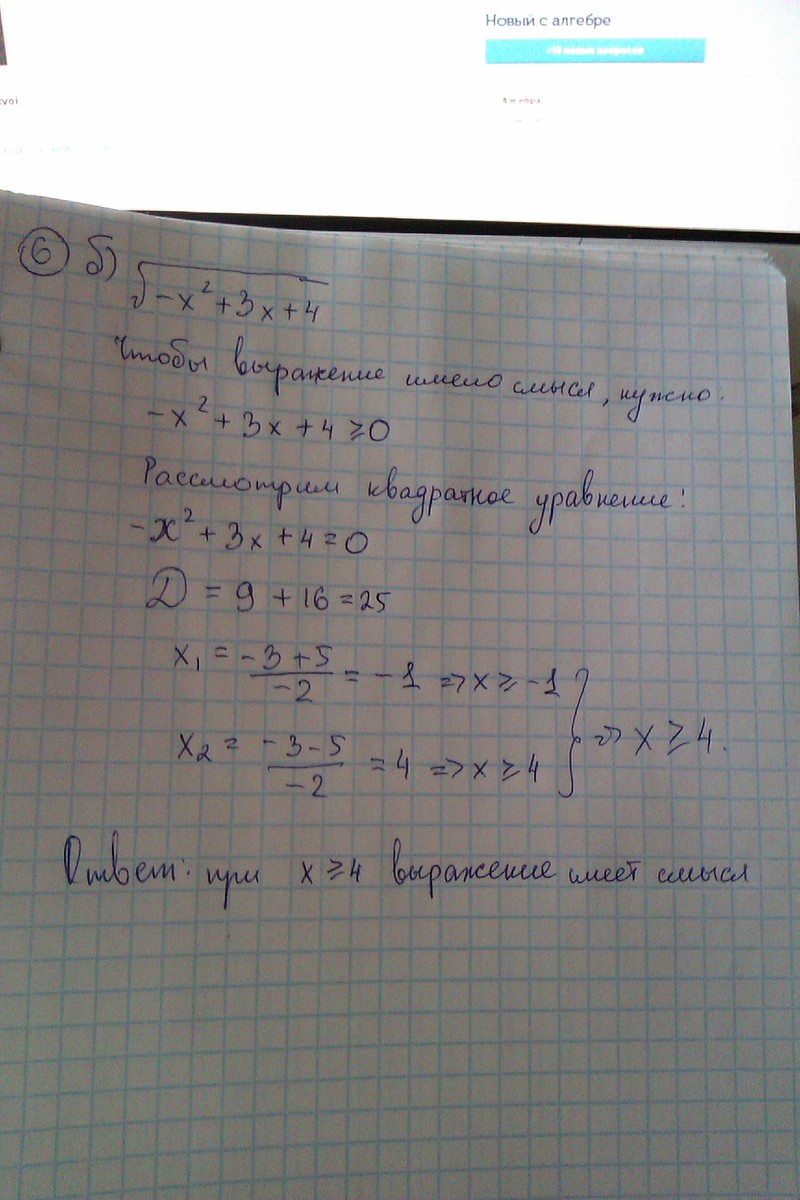 Новый с алгебре
voi
6 б) √-x²+3x+4
Чтобы выражение имело смысл, нужно.
-x²+3x+4≥0
Рассмотрим квадратное уравнение:
-x²+3x+4=0
D=9+16=25
x₁=(-3+5)/(-2)=-1 => x≥-1
x₂=(-3-5)/(-2)=4 => x≥4 } => x≥4.
Ответ: при x≥4 выражение имеет смысл